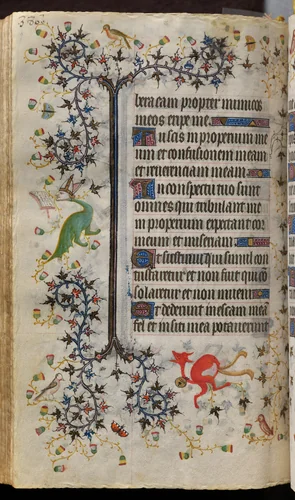 bera eam propter inimicos
meos eripe me
Tu scis improperium me
um et confusionem meam
et reverenciam meam
In conspectu tuo sunt
omnes qui tribulant me
improperium expectavit cor
meum et miseriam
Et sustinui qui simul con
tristaretur et non fuit et qui con
solaretur et non inveni
Et dederunt in escam mea
fel et in siti mea potaverunt